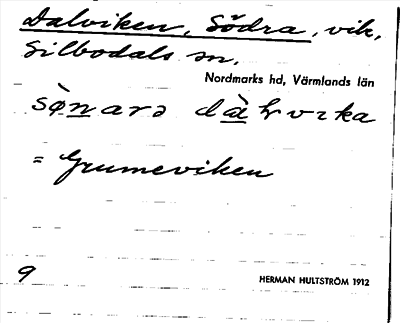 Dalviken, Södra, vik,
Silbodals sn.
Nordmarks hd, Värmlands län
= Grumeviken
9 HERMAN HULTSTRÖM 1912